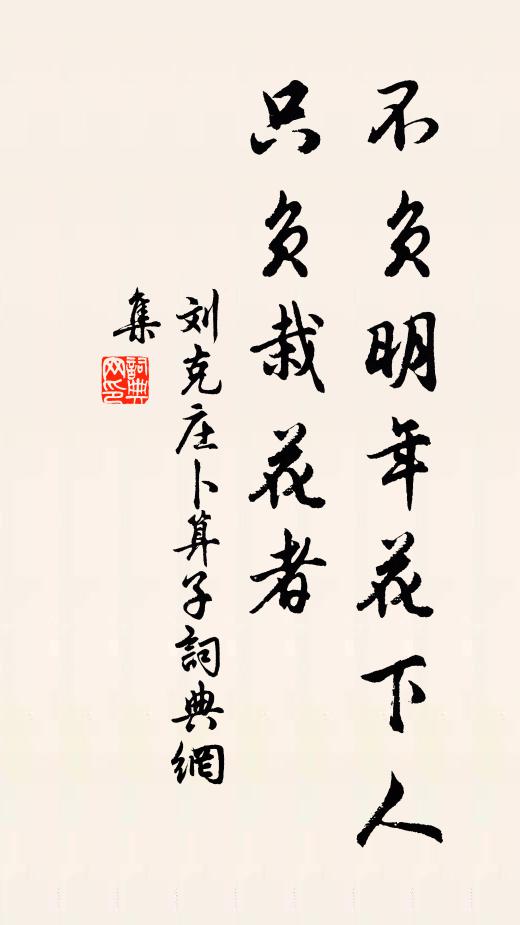 不负明年花下人
只负栽花者
刘克庄卜算子詞典網
集
詞典网印